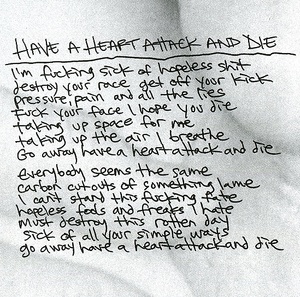 HAVE A HEART ATTACK AND DIE
I'm fucking sick of hopeless shit
destroy your race get off your kick
pressure, pain and all the lies
fuck your face I hope you die
taking up space for me
taking up the air I breathe
Go away have a heart attack and die
everybody seems the same
carbon cutouts of something lame
I can't stand this fucking fate
hopeless feds and freaks I hate
Must destroy this rotten day
Sick of all your simple ways
go away have a heart attack and die